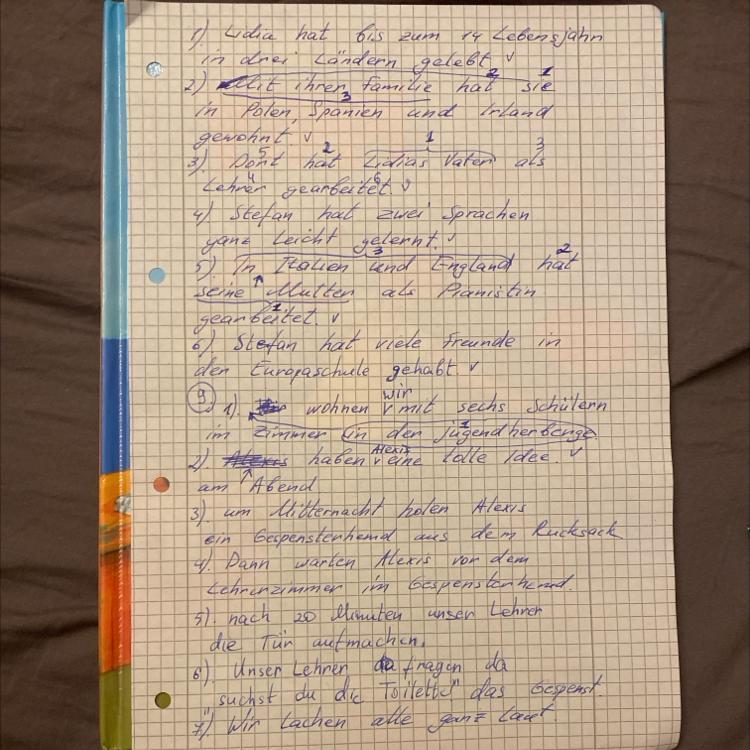 1) Lidia hat bis zum 14 Lebensjahr
in drei Ländern gelebt. v
2 1
2) Mit ihrer Familie hat sie
3
in Polen, Spanien und Irland
gewohnt. v
5 2 1 3
3) Dort hat Lidias Vater als
4 6
Lehrer gearbeitet. v
4) Stefan hat zwei Sprachen
ganz leicht gelernt. v
3 2
5) In Italien und England hat
seine Mutter als Pianistin
1
gearbeitet. v
6) Stefan hat viele Freunde in
der Europaschule gehabt. v
wir
9 1) wohnen v mit sechs Schülern
1
im Zimmer (in der Jugendherbenge.
Alexis
2). Alexis haben v eine tolle Idee. v
am Abend
3) um Mitternacht holen Alexis
ein Gespensterhemd aus dem Rucksack
4). Dann warten Alexis vor dem
Lehrerzimmer im Gespensterhemd.
5). nach 20 Minuten unser Lehrer
die Tür aufmachen.
6). Unser Lehrer fragen da
"suchst du die Toilette" das Gespenst
7) Wir lachen alle ganz laut.